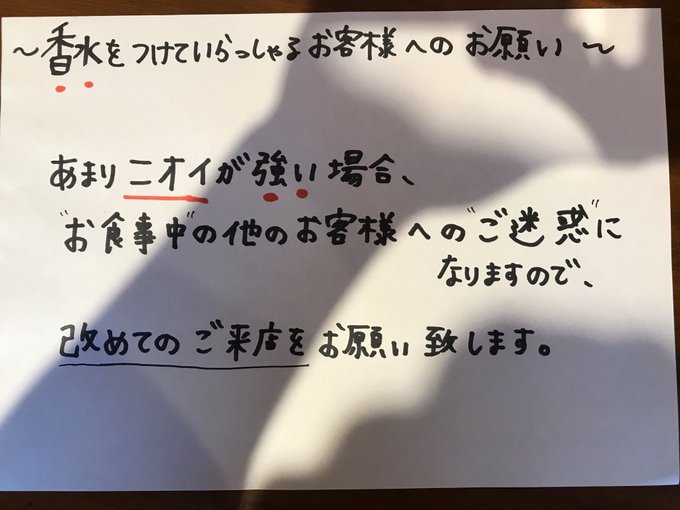 ～香水をつけていらっしゃるお客様へのお願い～
あまりニオイが強い場合、
"お食事中"の他のお客様への"ご迷惑"に
なりますので、
改めてのご来店をお願い致します。